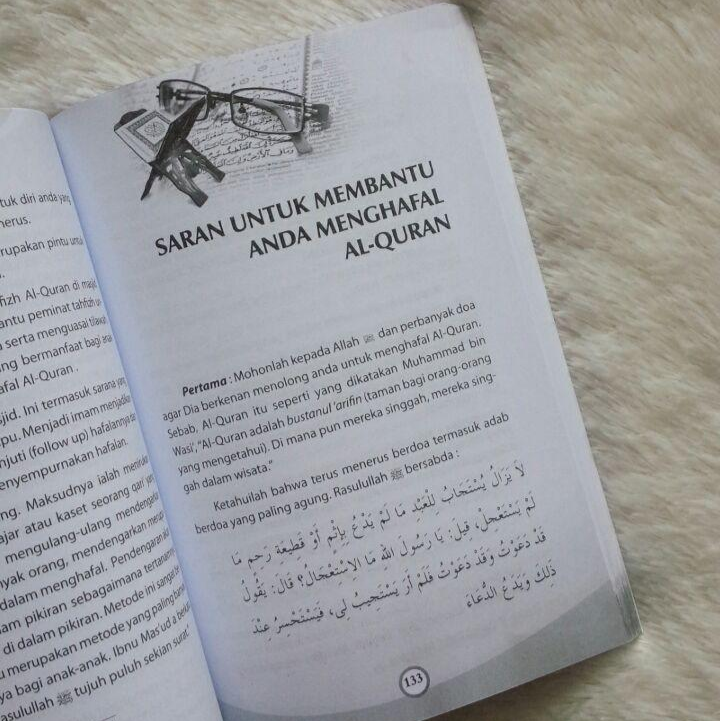 tuk diri anda yang
nerus.
rupakan pintu untuk
fizh Al-Quran di masjid.
antu peminat tahfizh
a serta menguasai tilawah
ng bermanfaat bagi anak
afal Al-Quran .
jid. Ini termasuk sarana yang
pu. Menjadi imam menjadikan
njuti (follow up) hafalannya
enyempurnakan hafalan.
ng. Maksudnya ialah
ajar atau kaset seorang qari' yang
mengulang-ulang mendengarkan
nyak orang, mendengarkan
dalam menghafal. Pendengaran
am pikiran sebagaimana tertanam
di dalam pikiran. Metode ini sangat
u merupakan metode yang paling
ya bagi anak-anak. Ibnu Mas'ud
Rasulullah ﷺ tujuh puluh sekian surat.
SARAN UNTUK MEMBANTU
ANDA MENGHAFAL
AL-QURAN
Pertama : Mohonlah kepada Allah ﷻ dan perbanyak doa
agar Dia berkenan menolong anda untuk menghafal Al-Quran.
Sebab, Al-Quran itu seperti yang dikatakan Muhammad bin
Wasi', "Al-Quran adalah bustanul 'arifin (taman bagi orang-orang
yang mengetahui). Di mana pun mereka singgah, mereka sing-
gah dalam wisata."
Ketahuilah bahwa terus menerus berdoa termasuk adab
berdoa yang paling agung. Rasulullah ﷺ bersabda :
لاَ يَزَالُ يُسْتَجَابُ لِلْعَبْدِ مَا لَمْ يَدْعُ بِإِثْمٍ أَوْ قَطِيعَةِ رَحِمٍ مَا
لَمْ يَسْتَعْجِلْ، قِيلَ: يَا رَسُولَ اللهِ مَا الاِسْتِعْجَالُ؟ قَالَ: يَقُولُ
قَدْ دَعَوْتُ وَقَدْ دَعَوْتُ فَلَمْ أَرَ يَسْتَجِيبُ لِي، فَيَسْتَحْسِرُ عِنْدَ
ذَلِكَ وَيَدَعُ الدُّعَاءَ
133